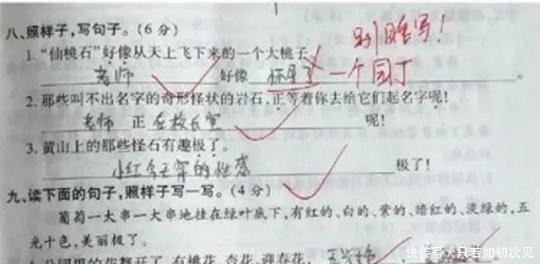 八、照样子,写句子。(6分)
别瞎写!
1.“仙桃石”好像从天上飞下来的一个大桃子
老师 好像 怀孕了 一个园丁。
2.那些叫不出名字的奇形怪状的岩石,正等着你去给它们起名字呢!
老师 正 在校长室 呢!
3.黄山上的那些怪石有趣极了。
小红今天穿的性感 极了!
九、读下面的句子,照样子写一写。(4分)
葡萄一大串一大串地挂在绿叶底下,有红的、白的、紫的、暗红的、淡绿的,五
光十色,美丽极了。
1.公园里的花都开了,有桃花、杏花、迎春花,
快传号/只若如初次见